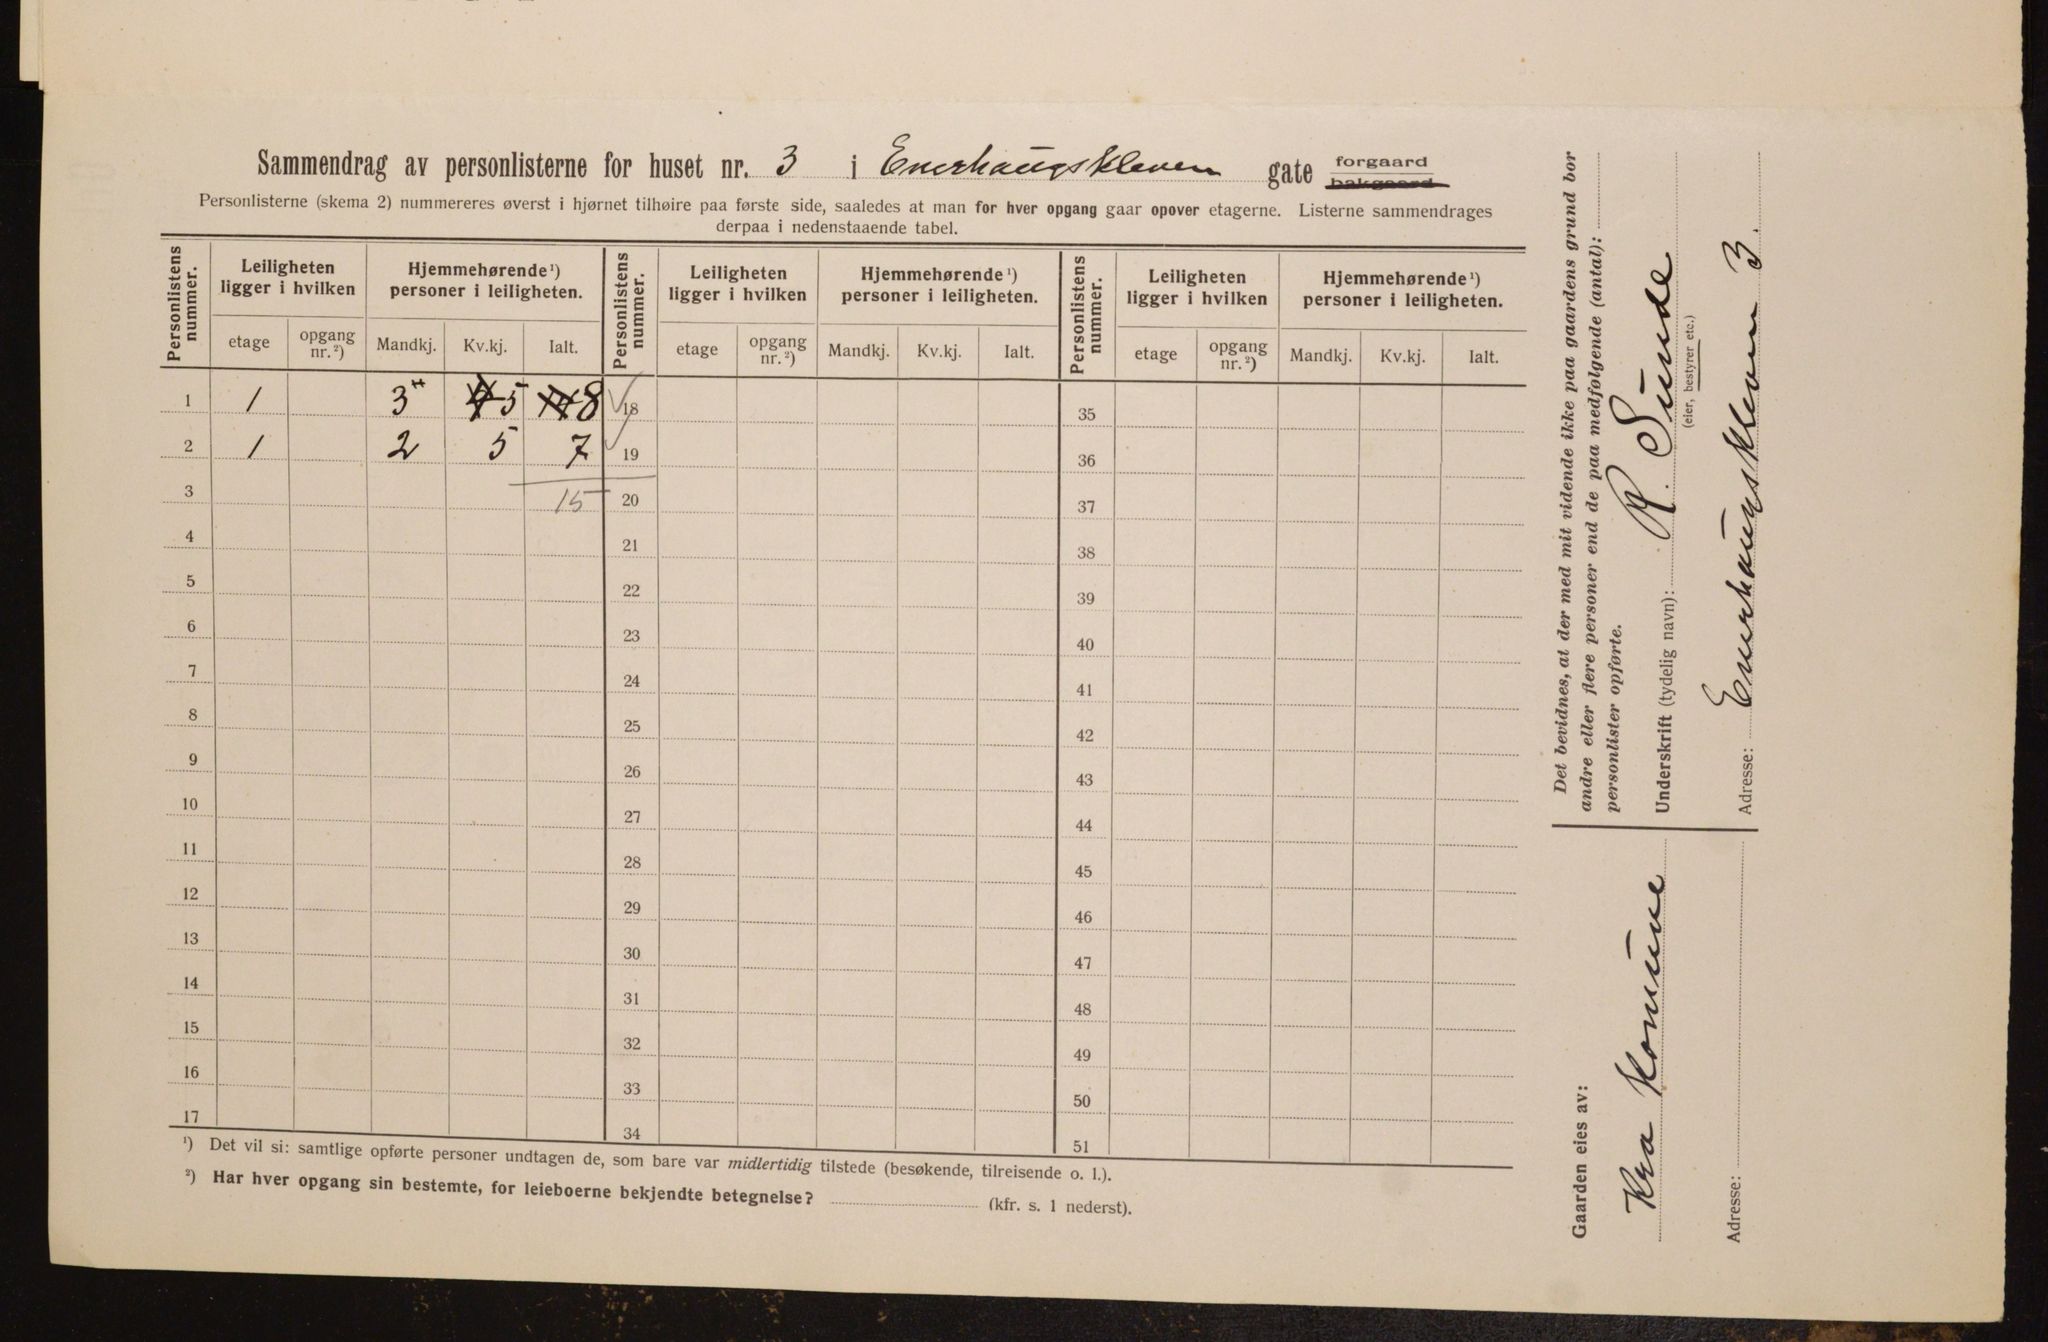 Sammendrag av personlisterne for huset nr. 3 i Enerhaugskleven gate forgaard bakgaard
Personlisterne (skema 2) nummereres øverst i hjørnet tilhøire paa første side, saaledes at man for hver opgang gaar opover etagerne. Listerne sammendrages
derpaa i nedenstaaende tabel.
Personlistens nummer. Leiligheten ligger i hvilken Hjemmehørende ¹) personer i leiligheten. Personlistens nummer. Leiligheten ligger i hvilken Hjemmehørende ¹) personer i leiligheten. Personlistens nummer. Leiligheten ligger i hvilken Hjemmehørende ¹) personer i leiligheten.
etage opgang nr. ²) Mandkj. Kv.kj. Ialt. etage opgang nr. ²) Mandkj. Kv.kj. Ialt. etage opgang nr. ²) Mandkj. Kv.kj. Ialt.
1 1 3 5 8 18 35
2 1 2 5 7 19 36
3 15 20 37
4 21 38
5 22 39
6 23 40
7 24 41
8 25 42
9 26 43
10 27 44
11 28 45
12 29 46
13 30 47
14 31 48
15 32 49
16 33 50
17 34 51
¹) Det vil si: samtlige opførte personer undtagen de, som bare var midlertidig tilstede (besøkende, tilreisende o. l.).
²) Har hver opgang sin bestemte, for leieboerne bekjendte betegnelse? (kfr. s. 1 nederst).
Det bevidnes, at der med mit vidende ikke paa gaardens grund bor
andre eller flere personer end de paa medfølgende (antal):
personlister opførte.
Underskrift (tydelig navn): R. Sunde
(eier, bestyrer etc.)
Adresse: Enerhaugskleven 3.
Gaarden eies av:
Kra Komune
Adresse: